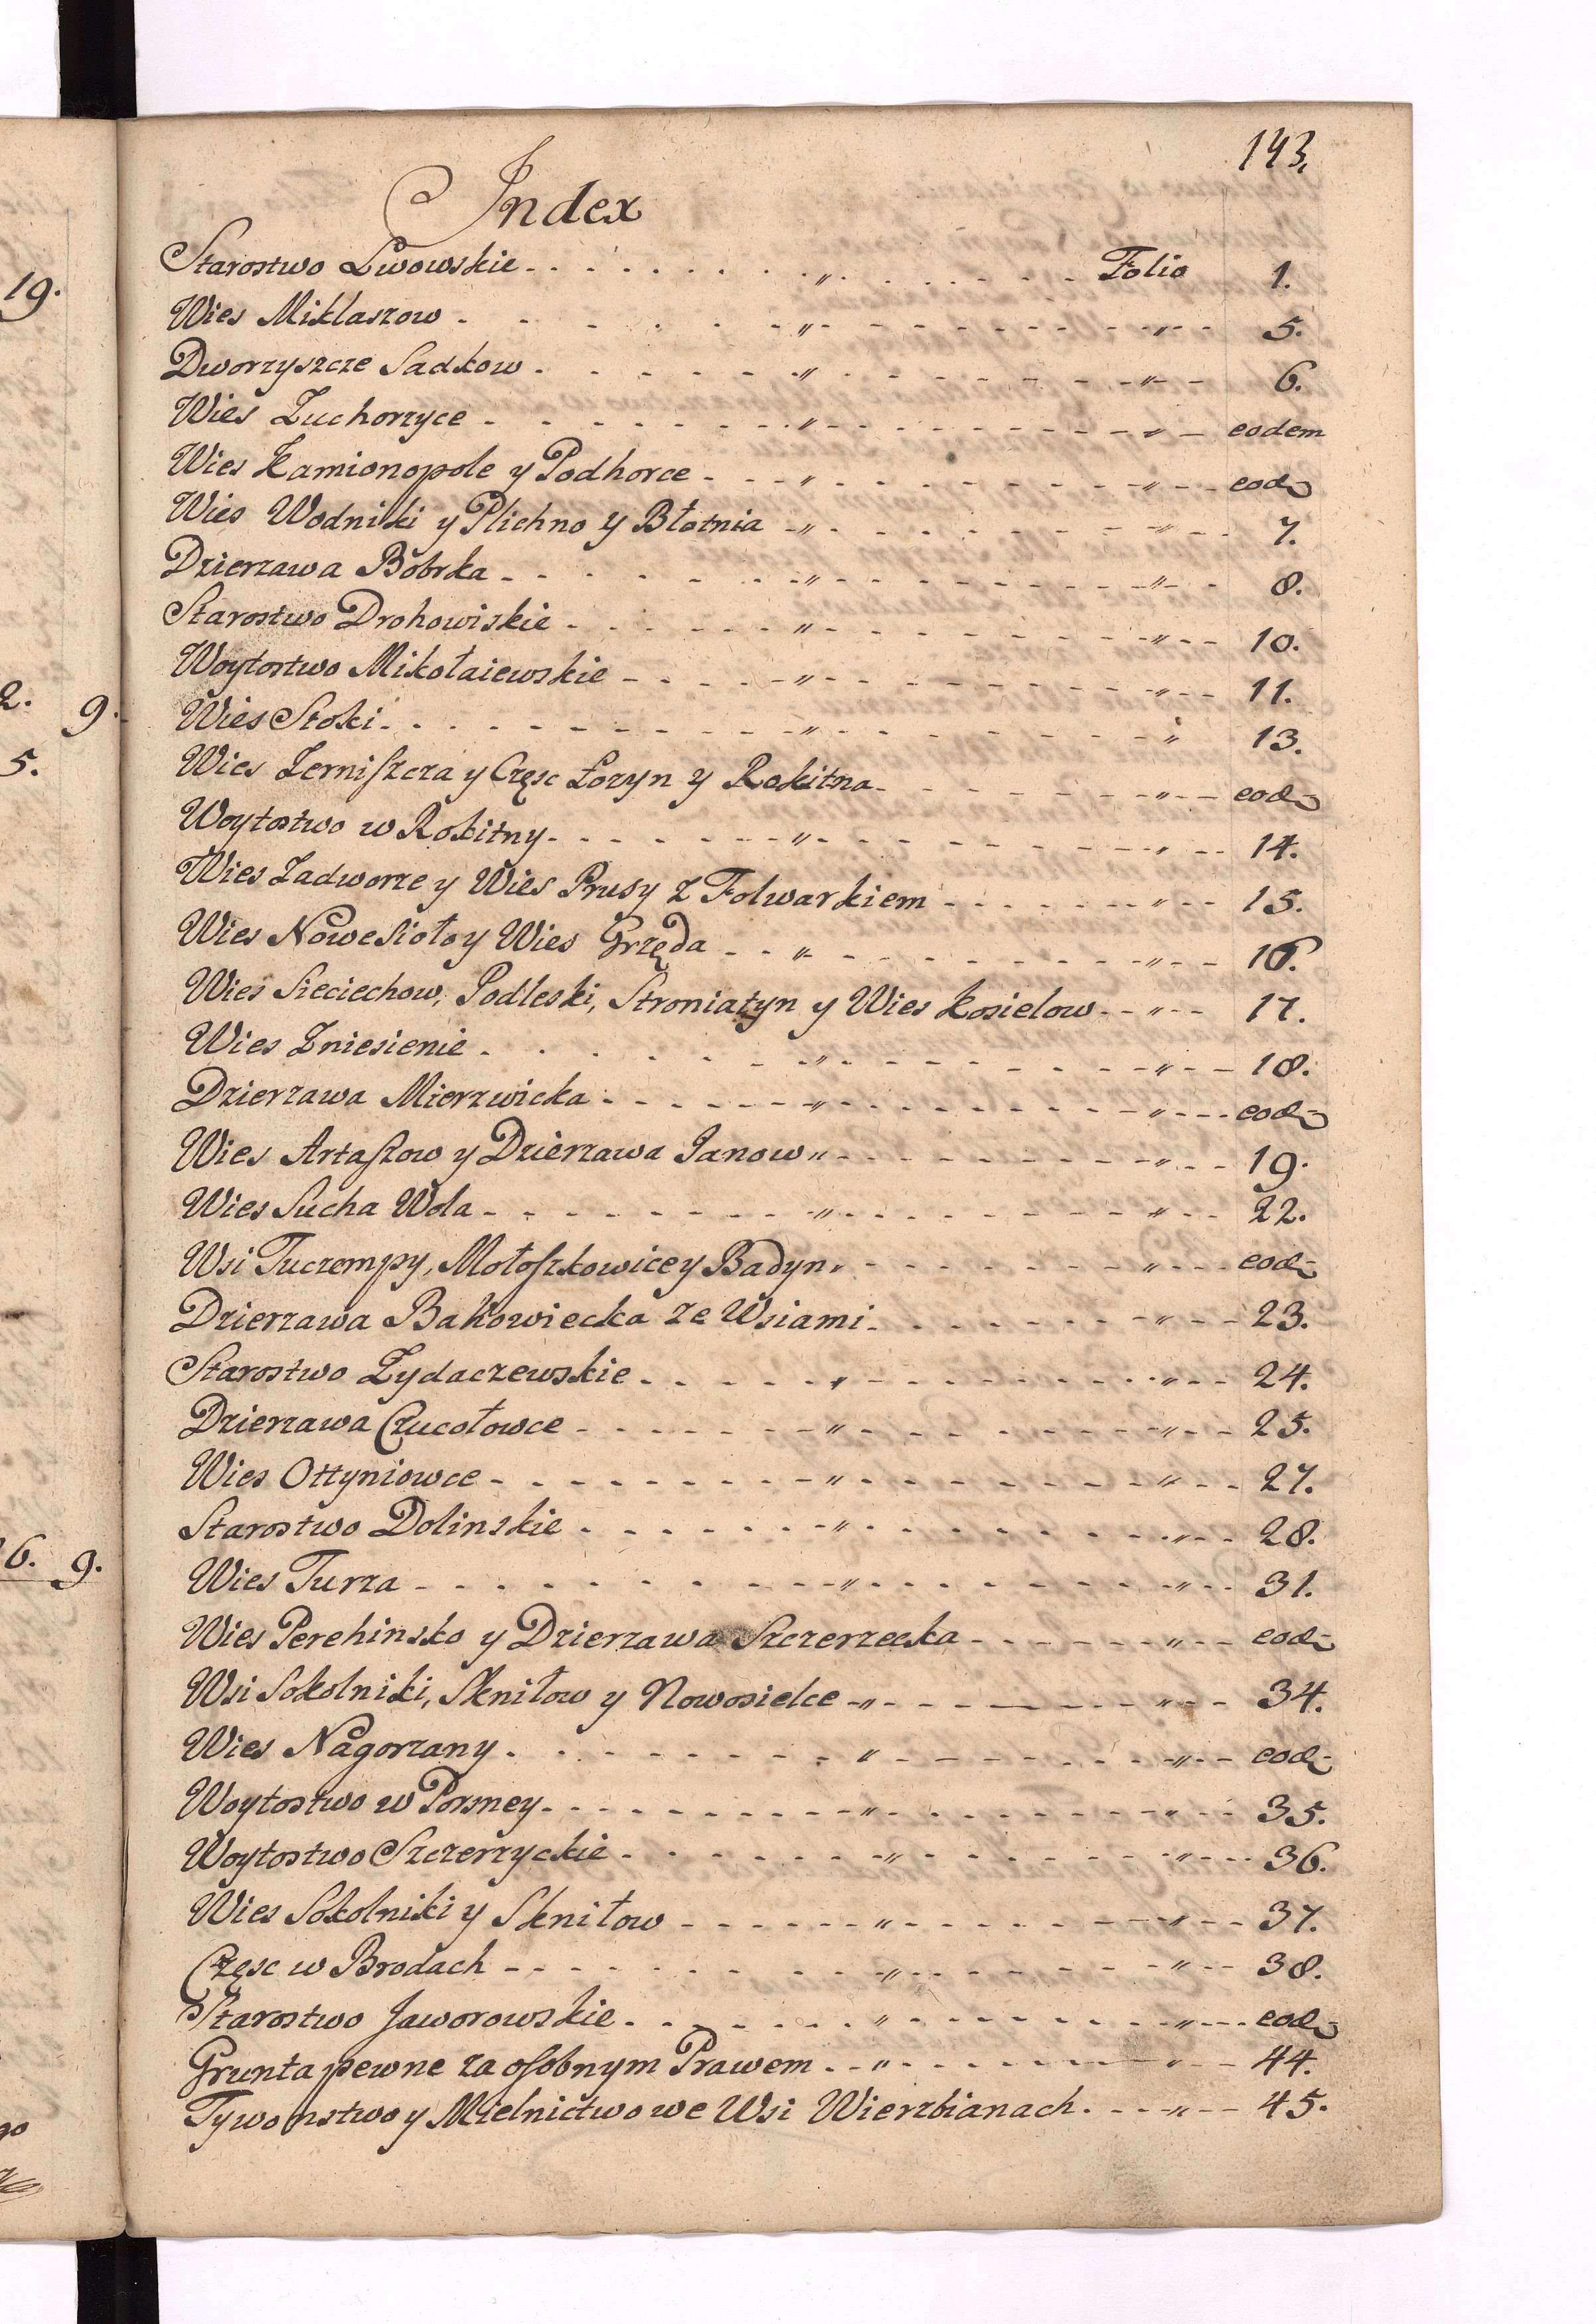 143.
Index
Starostwo Lwowskie - - - - „ - - - - Folio 1.
Wies Miklaszow - - - - „ - - - - „ - - 5.
Dworzyszcze Sadkow - - - - „ - - - - „ - - 6.
Wies Zuchorzyce - - - - „ - - - - „ - eodem
Wies Kamionopole y Podhorce - - - „ - - - - „ - - eod:
Wies Wodniki y Plichno y Błotnia - „ - - - - „ - - 7.
Dzierzawa Bobrka - - - - „ - - - - „ - - 8.
Starostwo Drohowiskie - - - - „ - - - - „ - - 10.
Woytostwo Mikołaiewskie - - - - „ - - - - „ - - 11.
Wies Stoki - - - - „ - - - - „ 13.
Wies Zerniszcza y Częsc Łozyn y Rokitna - - - - „ - - eod:
Woytostwo w Rokitny - - - - „ - - - - „ - - 14.
Wies Zadworze y Wies Prusy z Folwarkiem - - - - „ - - 15.
Wies Nowesioło y Wies Grzęda - - „ - - - - „ - - 16.
Wies Sieciechow, Podleski, Stroniatyn y Wies Kosielow - - „ - - 17.
Wies Zniesienie - - - - „ - - - - „ - - 18.
Dzierzawa Mierzwicka - - - - „ - - - - „ - - - eod:
Wies Artaszow y Dzierzawa Janow „ - - - - „ - - 19.
Wies Sucha Wola - - - - „ - - - - „ - - 22.
Wsi Tuczempy, Mołoszkowice y Badyn „ - - - - „ - - - eod:
Dzierzawa Bakowiecka ze Wsiami - - - - „ - - 23.
Starostwo Zydaczewskie - - - - „ - - - - „ - - 24.
Dzierzawa Czucołowce - - - - „ - - - - „ - - 25.
Wies Ottyniowce - - - - „ - - - - „ - - 27.
Starostwo Dolinskie - - - - „ - - - - „ - - 28.
Wies Turza - - - - „ - - - - „ - - 31.
Wies Perehinsko y Dzierzawa Szczerzecka - - - - „ - - eod:
Wsi Sokolniki, Skniłow y Nowosielce - „ - - - - „ - - 34.
Wies Nagorzany - - - - „ - - - - „ - - eod:
Woytostwo w Porsney - - - - „ - - - - „ - - 35.
Woytostwo Szczerzyckie - - - - „ - - - - „ - - - 36.
Wies Sokolniki y Skniłow - - - - „ - - - - „ - - 37.
Częsc w Brodach - - - - „ - - - - „ - - 38.
Starostwo Jaworowskie - - - - „ - - - - „ - - - eod:
Grunta pewne za osobnym Prawem - - „ - - - - „ - - 44.
Tywonstwo y Mielnictwo we Wsi Wierzbianach - - - „ - - 45.
19.
2. 9.
5.
6. 9.